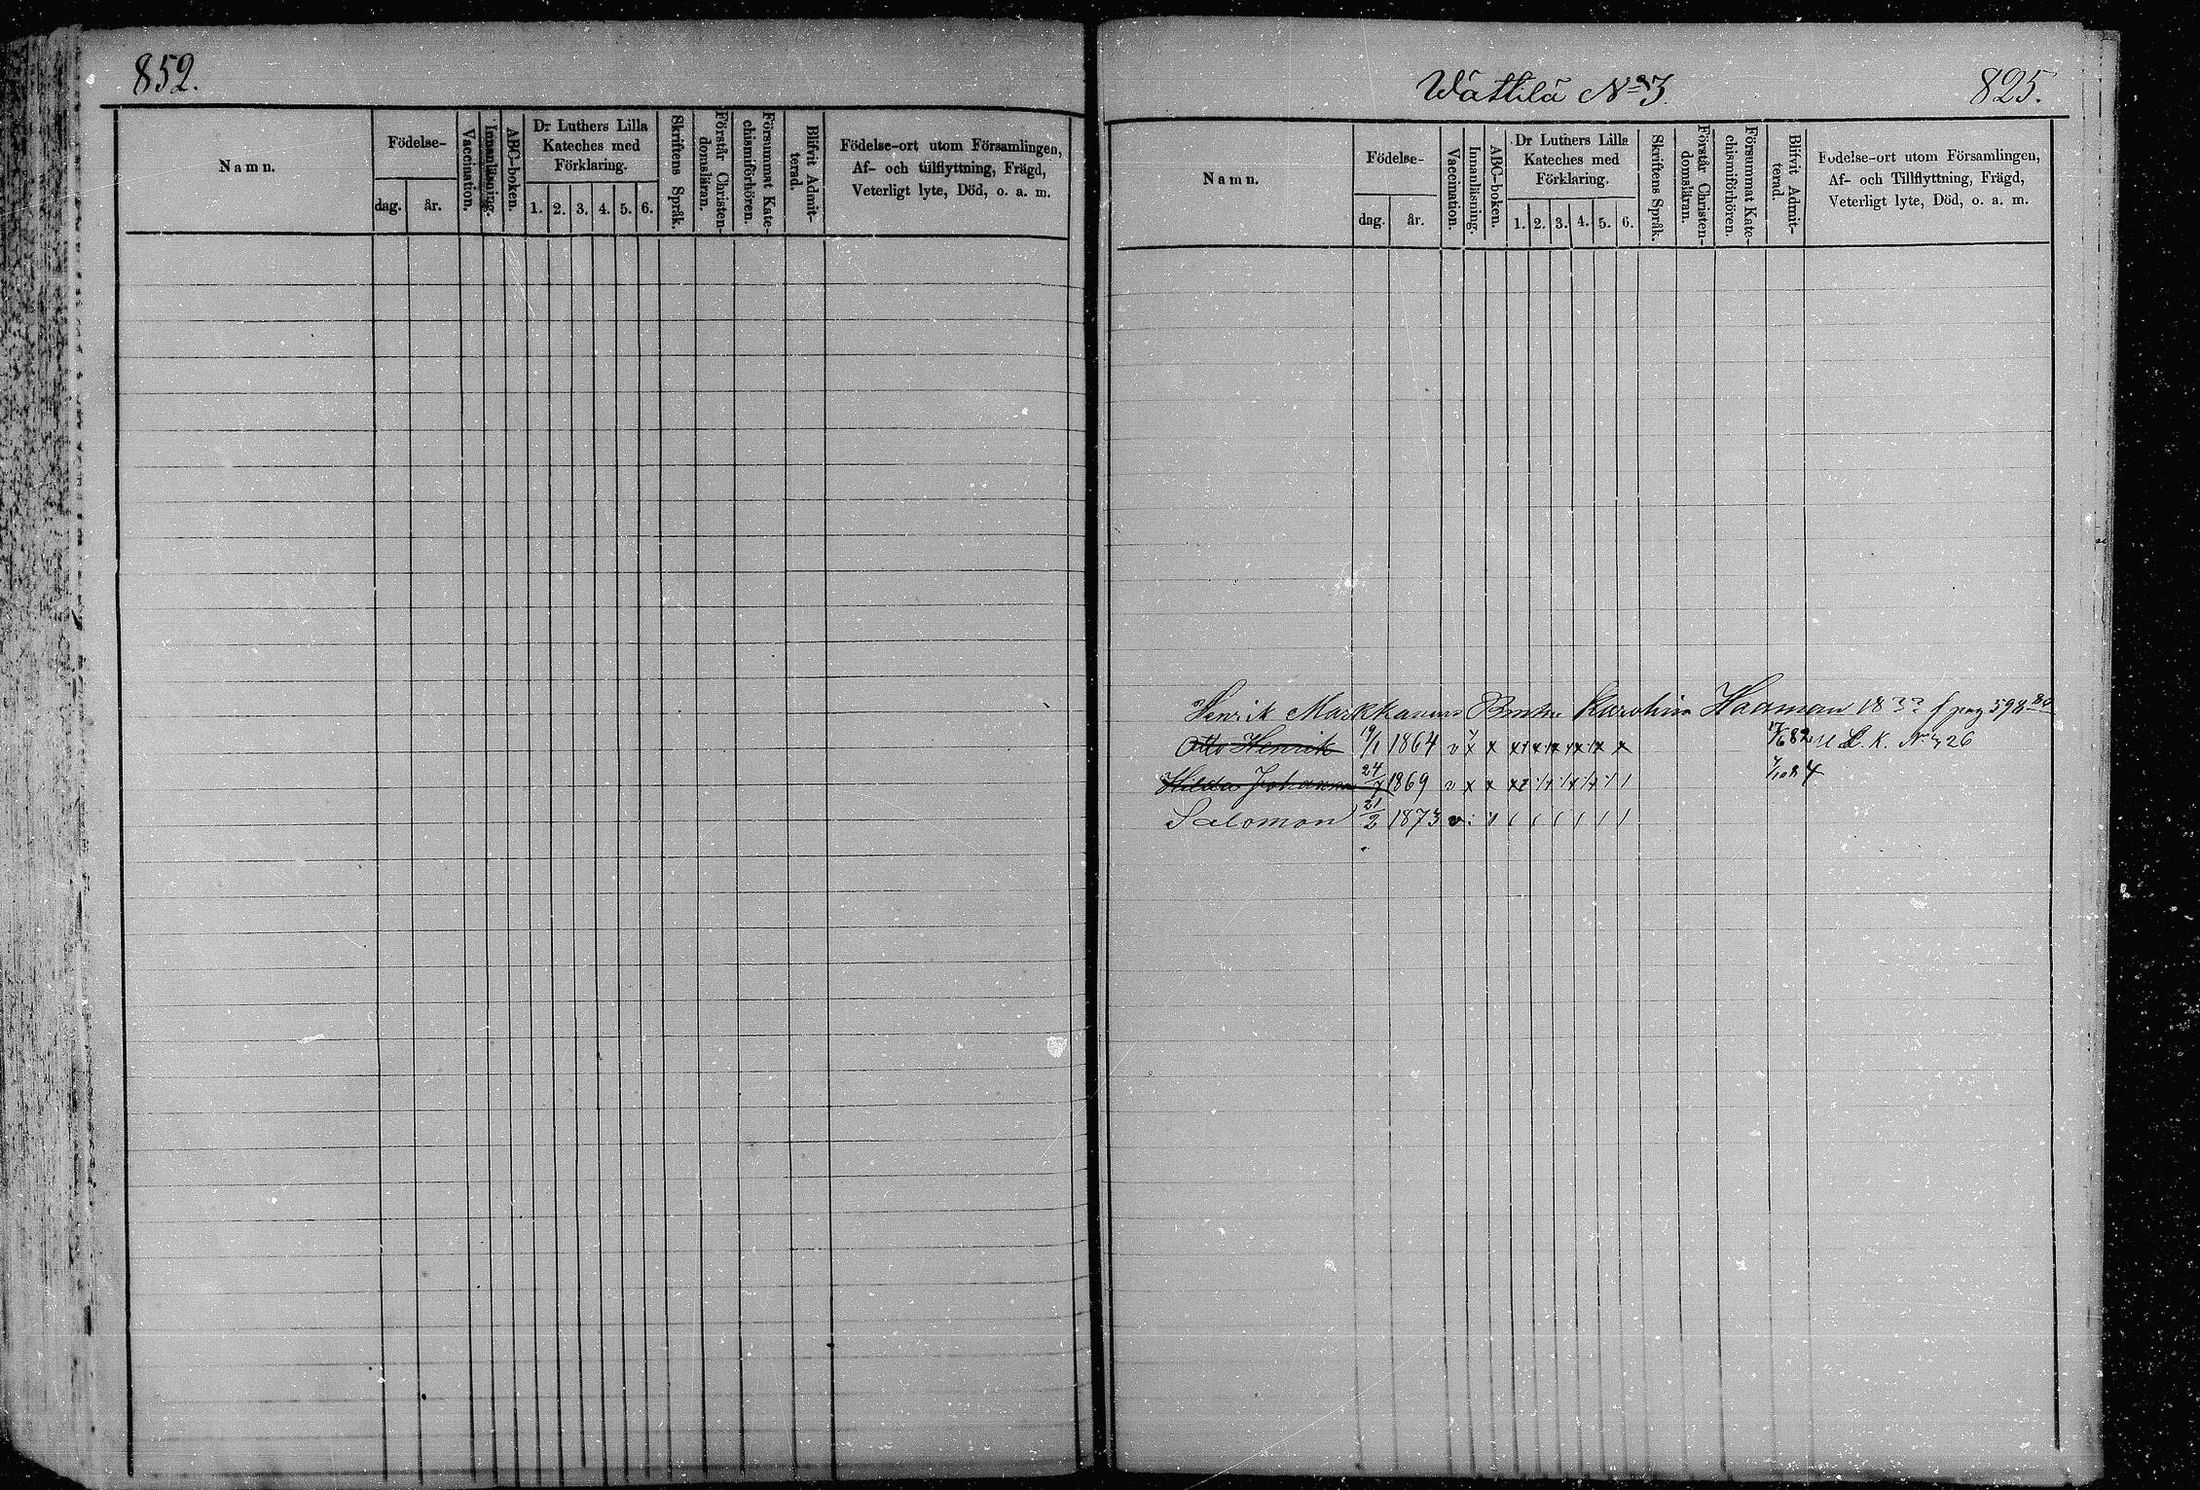 852.
Namn.
Födelse-
dag.
år.
Vaccination.
Innanläsning.
ABC-boken.
Dr Luthers Lilla
Kateches med
Förklaring.
1. 2. 3. 4. 5. 6.
Skriftens Språk.
Förstår Christen-
domsläran.
Försummat Kate-
chismiförhören.
Blifvit Admit-
terad.
Födelse-ort utom Församlingen,
Af- och tillflyttning, Frägd,
Veterligt lyte, Död, o. a. m.
Wättilä No 3.
825.
Namn.
Födelse-
dag.
år.
Vaccination.
Innanläsning.
ABC-boken.
Dr Luthers Lilla
Kateches med
Förklaring.
1. 2. 3. 4. 5. 6.
Skriftens Språk.
Förstår Christen-
domsläran.
Försummat Kate-
chismiförhören.
Blifvit Admit-
terad.
Födelse-ort utom Församlingen,
Af- och Tillflyttning, Frägd,
Veterligt lyte, Död, o. a. m.
Henrik Markkanens Karolina Haaman f pag 598
Otto Henrik 19/1 1864 v x x x x x x x x 17/6 82
Hilda Johanna 24/7 1869 v x x
Salomon 21/2 1873 v